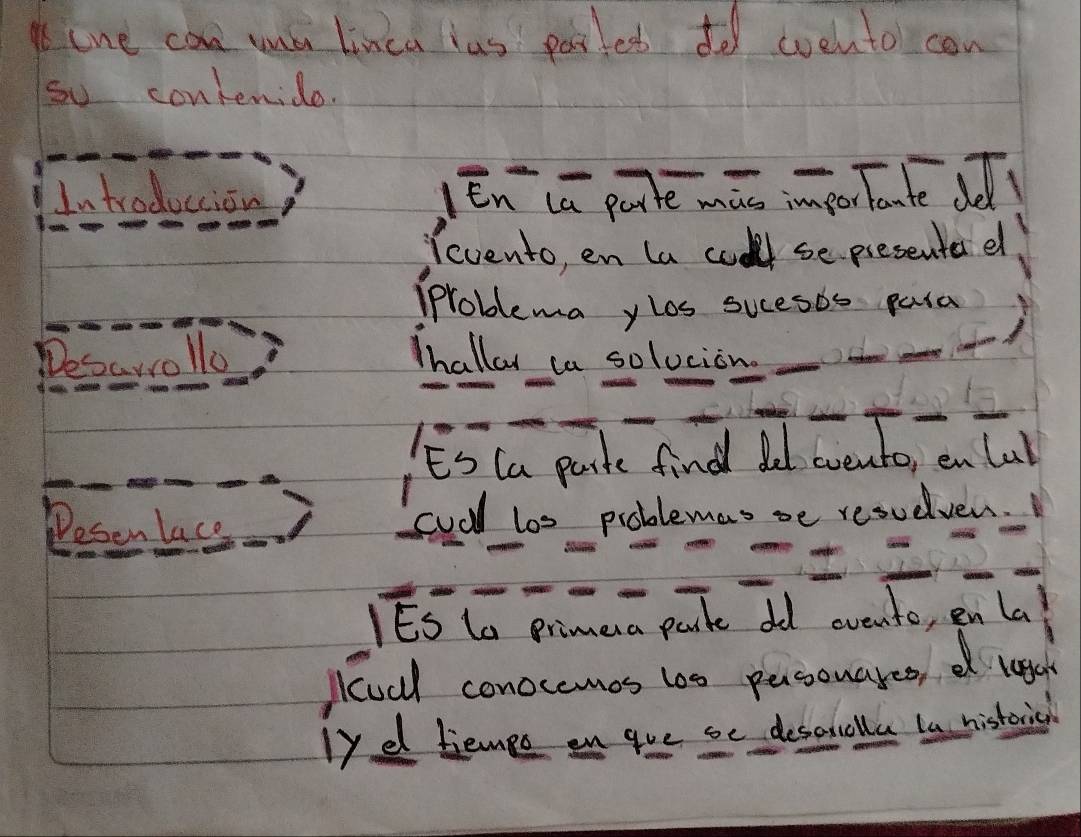 une con una linea las partes del cuento con
su contenido.
Introducción
En la parte más importante del
cuento, en la cual se presenta el
problema y los sucesos para
Desarrollo
hallar la solución.
Es la parte final del cuento, en la
cual los problemas se resuelven.
Desenlace
Es la primera parte del cuento, en la
cual conocemos los personajes, el lugar
y el tiempo en que se desarrolla la historia